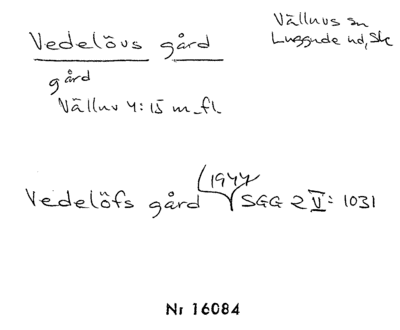 Vedelövs gård
Vällovs sn
Luggude hd, Sk
gård
Vällov 4:15 m.fl.
1944
Vedelöfs gård SGG 2 V: 1031
Nr 16084